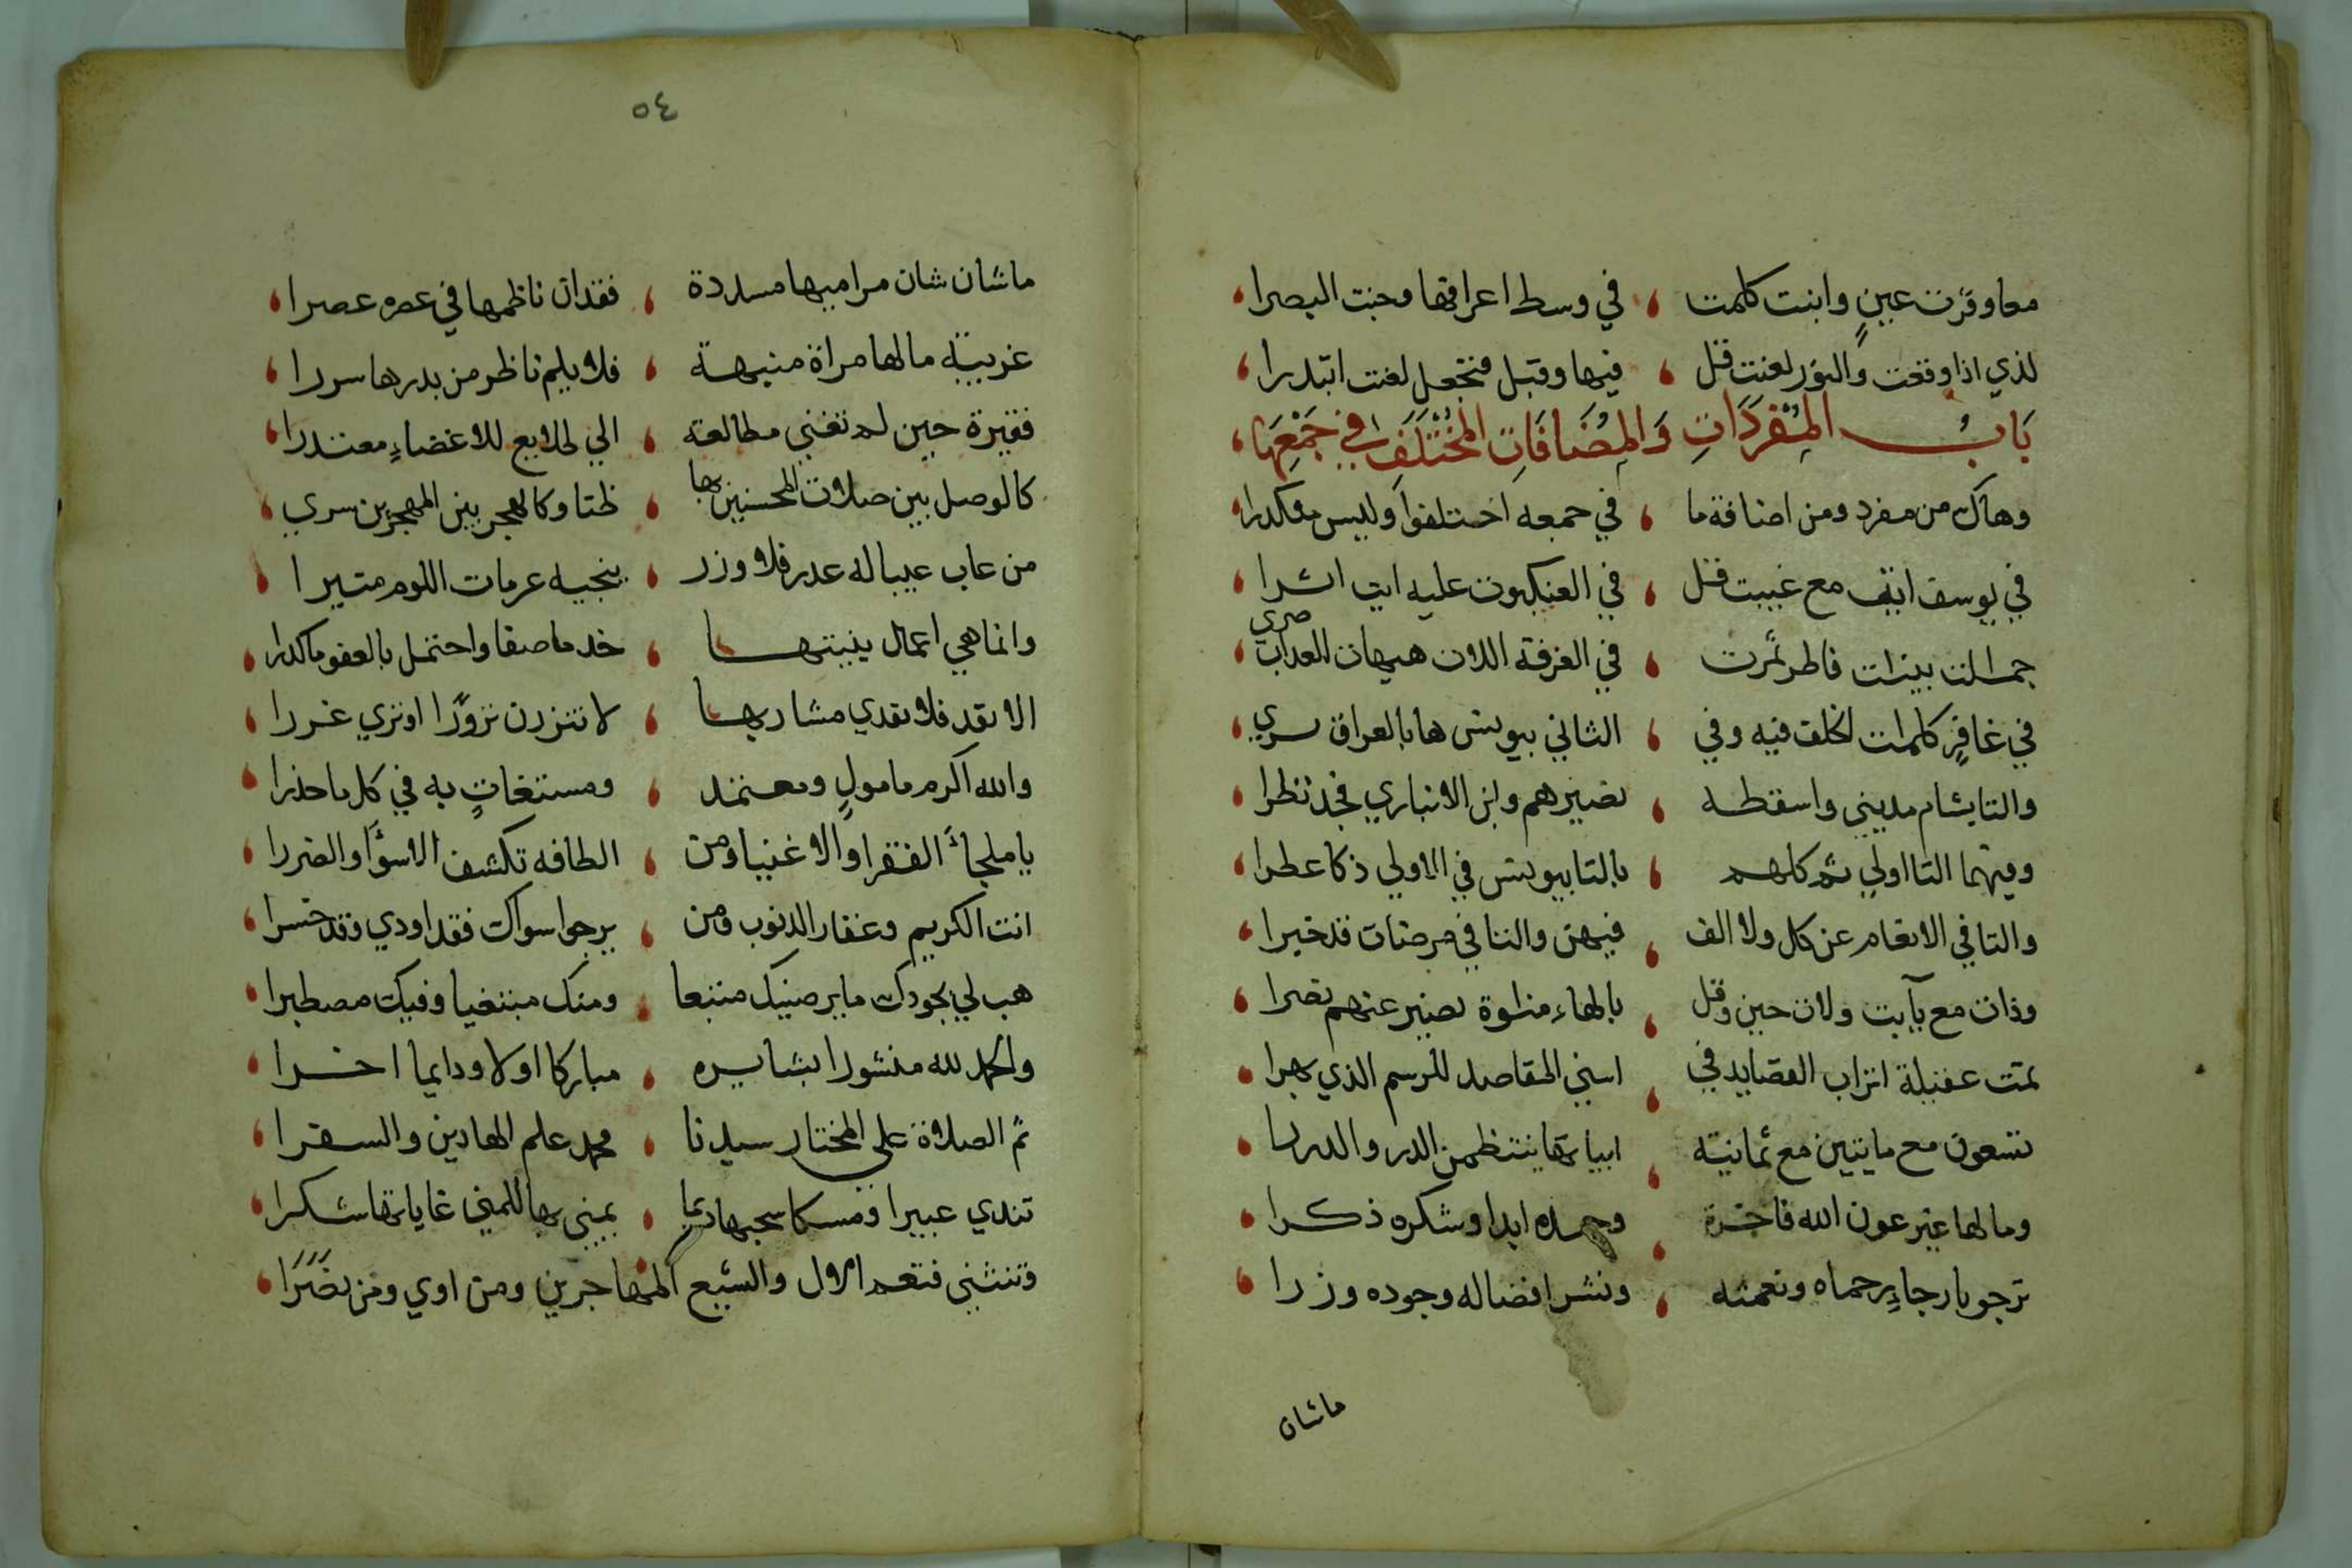 معا وقرت عين وابنت كلمت ، في وسط اعرافها وجنت البصرا ،
لذي اذا وقعت والنور لعنت قل ، فيها وقبل فنجعل لعنت ابتدرا ،
بَابُ المُفرَدَاتِ وَالمُضَافَاتِ المُخْتَلَفِ في جَمْعِهَا ،
وهاك من مفرد ومن اضافة ما ، في جمعه اختلفوا وليس منكدرا ،
في يوسف ايت مع غيبت قل ، في العنكبوت عليه ايت اثرا ،
جمالت بينات فاطر ثمرت ، في الغرفة اللات هيهات العداب صرى ،
في غافر كلمات الخلف فيه وفي ، الثاني بيونس هابا لعراق سري ،
والتا بشام مديني واسقطه ، نصيرهم وابن الانباري فجد نظرا ،
وفيهما التا اولي ثم كلهم ، بالتا بيونس في الاولي ذكا عطرا ،
والتا في الانعام عن كل ولا الف ، فيهن والتا في مرضات قد خيرا ،
وذات مع يآبت ولات حين وقل ، بالهاء مناوة نصير عنهم نصرا ،
تمت عقيلة اتراب القصايد في ، اسني المقاصد للرسم الذي بهرا ،
تسعون مع مايتين مع ثمانية ، ابياتها ينتظمن الدر والدررا ،
وما لها غير عون الله فاخرة ، وحمده ابدا وشكره ذكرا ،
ترجو بارجاء رحماه ونعمته ، ونشر افضاله وجوده وزرا ،
ماشان
٥٤
ماشان شان مراميها مسددة ، فقدان ناظمها في عصره عصرا ،
غريبة مالها مراة منبهة ، فلا يلم ناظر من بدرها سررا ،
فقيرة حين لم تغني مطالعة ، الي طلايع للاغضاء معتدرا ،
كالوصل بين صلات المحسنين بها ، ظنا وكالهجر بين المهجرين سري ،
من عاب عيبا له عدر فلا وزر ، ينجيه عرمات اللوم متيرا ،
وانما هي اعمال بنيتها ، خد ما صفا واحتمل بالعفو ما كدرا ،
الا تقد فلا تقدي مشاربها ، لا تنزرن نزورا او تري غررا ،
والله اكرم مامول ومعتمد ، ومستغاث به في كل ما حذرا ،
يا ملجأ الفقرا والاغنيا ومن ، الطافه تكشف الاسوا والضررا ،
انت الكريم وغفار الدنوب ومن ، يرجو سواك فقد اودي وقد خسرا ،
هب لي بجودك ما يرضيك متبعا ، ومنك مبتغيا وفيك مصطبرا ،
والحمد لله منشورا بشايره ، مباركا اولا ودايما اخرا ،
ثم الصلاة علي المختار سيدنا ، محمد علم الهادين والسفرا ،
تندي عبيرا ومسكا سحبها ديما ، يمني بها للمني غاياتها شكرا ،
وتنثني فتعم الال والشيع المهاجرين ومن اوي ومن نصَرَا ،